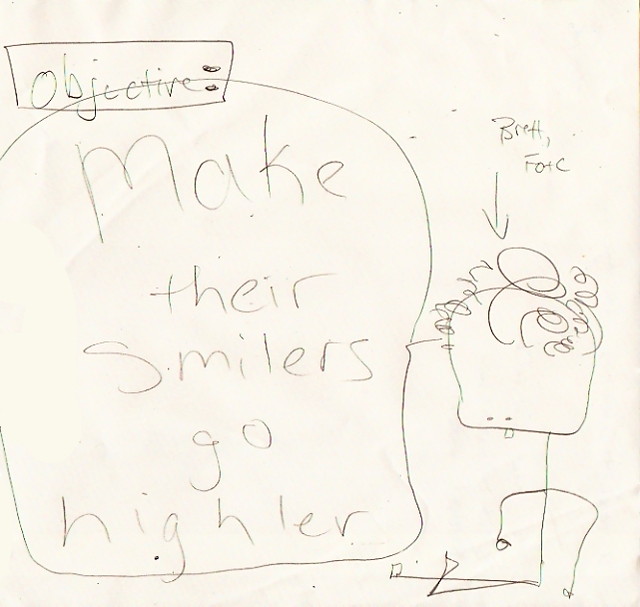 Objective:
Make
their
smilers
go
highler
Brett,
FotC